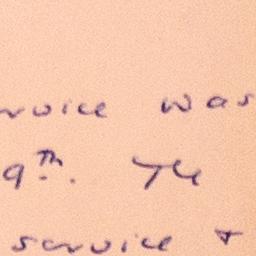 rvice was
9th. The
service +